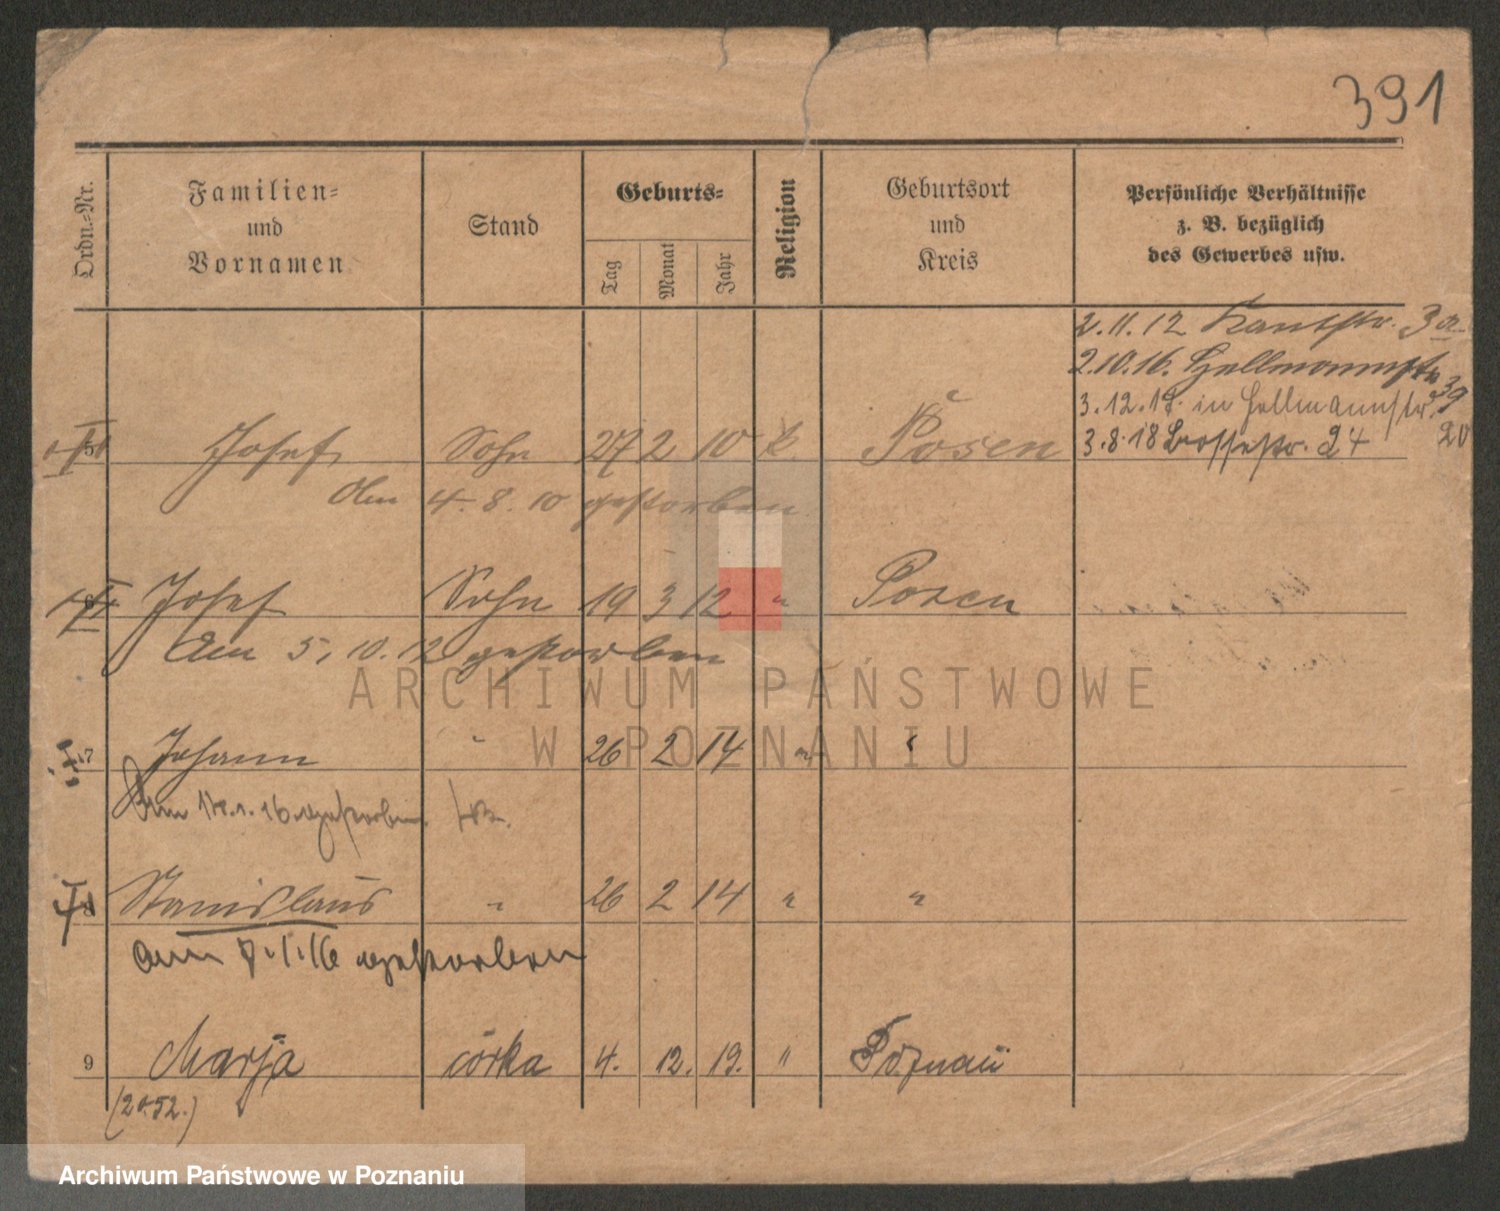 391
Ordn.=Nr.
Familien=
und
Vornamen
Stand
Geburts=
Tag
Monat
Jahr
Religion
Geburtsort
und
Kreis
Persönliche Verhältnisse
z. B. bezüglich
des Gewerbes usw.
2.11.12 Kantstr. 3a
2.10.16. Hellmannstr 39
3.12.17. in Hellmannstr. 20
3.8.18 Brossestr. 24
5 Josef Sohn 27 2 10 k. Posen
Am 4.8.10 gestorben
6 Josef Sohn 19 3 12 " Posen
Am 5.10.12 gestorben
7 Johann " 26 2 14 " "
Am 18.1.16 gestorben
8 Stanislaus " 26 2 14 " "
am 7.1.16 gestorben
9 Marja córka 4. 12. 19. " Poznań
(2052.)
ARCHIWUM PAŃSTWOWE
W POZNANIU
Archiwum Państwowe w Poznaniu